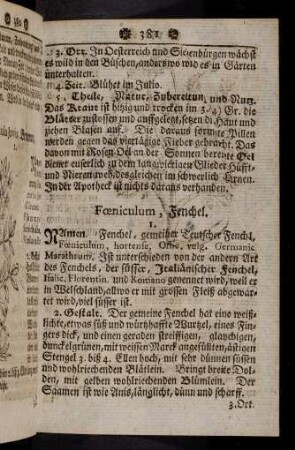 381
3. Ort. In Oesterreich und Siebenbürgen wächst
es wild in den Büschen, anderswo wird es in Gärten
unterhalten.
4. Zeit. Blühet im Julio.
5. Theile, Natur, Zubereitung und Nutz.
Das Kraut ist hitzig und trocken im 3. Gr. die
Blätter zustossen und auffgelegt, setzen die Haut und
ziehen Blasen auf. Die daraus formirte Pillen
werden gegen das viertägige Fieber gebraucht. Das
davon mit Rosen-Oel an der Sonnen bereitete Oel
dienet euserlich zu dem langwierigen Glieder Hüfft-
und Nieren weh, desgleichen im schwerlich Harnen.
In der Apotheck ist nichts daraus verhanden.
Fœniculum, Fenchel.
1.
Namen. Fenchel, gemeiner Teutscher Fenchl,
Fœniculum, hortense, Offic. vulg. Germanic.
Marathrum. Ist unterschieden von der andern Art
des Fenchels, der süsser, Italiänischer Feinchel,
Italic. Florentin. und Romano genennet wird, weil er
in Welschland, allwo er mit grossen Fleiß abgewar-
tet wird, viel süsser ist.
2. Gestalt. Der gemeine Fenchel hat eine weiß-
lichte, etwas süß und würtzhaffte Wurtzel, eines Fin-
gers dick, und einen geraden streiffigen, glaichigen,
dunckelgrünen, mit weissen Marck angefüllten, ästigen
Stengel 3. biß 4. Ellen hoch, mit sehr dünnen süssen
und wohlriechenden Blätlein. Bringt breite Dol-
den, mit gelben wohlriechenden Blümlein. Der
Saamen ist wie Anis, länglicht, dünn und scharff.
3. Ort.